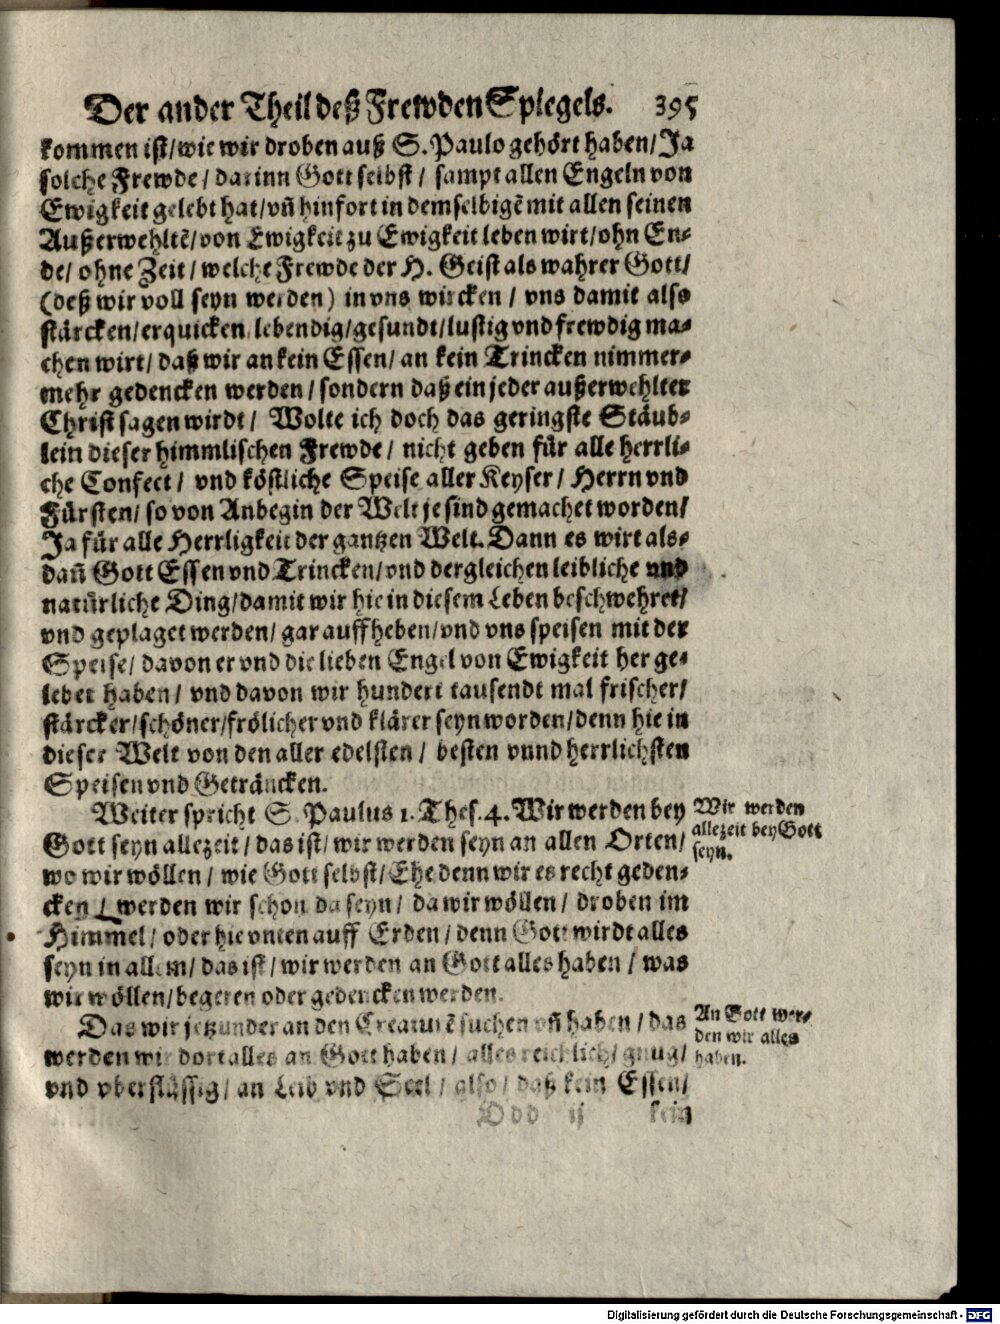 Der ander Theil deß Frewden Spiegels. 395
kommen ist/wie wir droben auß S. Paulo gehört haben/Ja
solche Frewde/ darinn Gott selbst/ sampt allen Engeln von
Ewigkeit gelebt hat/vñ hinfort in demselbigẽ mit allen seinen
Außerwehltẽ/von Ewigkeit zu Ewigkeit leben wirt/ohn En-
de/ ohne Zeit/ welche Frewde der H. Geist als wahrer Gott/
(deß wir voll seyn werden) in vns wircken/ vns damit also
stärcken/erquicken/lebendig/gesundt/lustig vnd frewdig ma-
chen wirt/ daß wir an kein Essen/ an kein Trincken nimmer-
mehr gedencken werden/ sondern daß ein jeder außerwehlter
Christ sagen wirdt/ Wolte ich doch das geringste Stäub-
lein dieser himmlischen Frewde/ nicht geben für alle herrli-
che Confect/ vnd köstliche Speise aller Keyser/ Herrn vnd
Fürsten/ so von Anbegin der Welt je sind gemachet worden/
Ja für alle Herrligkeit der gantzen Welt. Dann es wirt als-
dañ Gott Essen vnd Trincken/vnd dergleichen leibliche vnd
natürliche Ding/damit wir hie in diesem Leben beschwehret/
vnd geplaget werden/ gar auffheben/vnd vns speisen mit der
Speise/ davon er vnd die lieben Engel von Ewigkeit her ge-
lebet haben/ vnd davon wir hundert tausendt mal frischer/
stärcker/schöner/frölicher vnd klärer seyn worden/denn hie in
dieser Welt von den aller edelsten/ besten vnnd herrlichsten
Speisen vnd Geträncken.
Weiter spricht S. Paulus 1. Thes. 4. Wir werden bey
Gott seyn allezeit/ das ist/ wir werden seyn an allen Orten/
wo wir wöllen/ wie Gott selbst/ Ehe denn wir es recht geden-
cken/ werden wir schon da seyn/ da wir wöllen/ droben im
Himmel/ oder hie vnten auff Erden/ denn Gott wirdt alles
seyn in allem/ das ist/ wir werden an Gott alles haben/ was
wir wöllen/begeren oder gedencken werden.
Das wir jetzunder an den Creaturẽ suchen vñ haben/ das
werden wir dort alles an Gott haben/ alles reichlich/ gnug/
vnd vberflüssig/ an Leib vnd Seel/ also/ daß kein Essen/
Ddd ij kein
Wir werden
allezeit bey Gott
seyn.
An Gott wer-
den wir alles
haben.
Digitalisierung gefördert durch die Deutsche Forschungsgemeinschaft - DFG